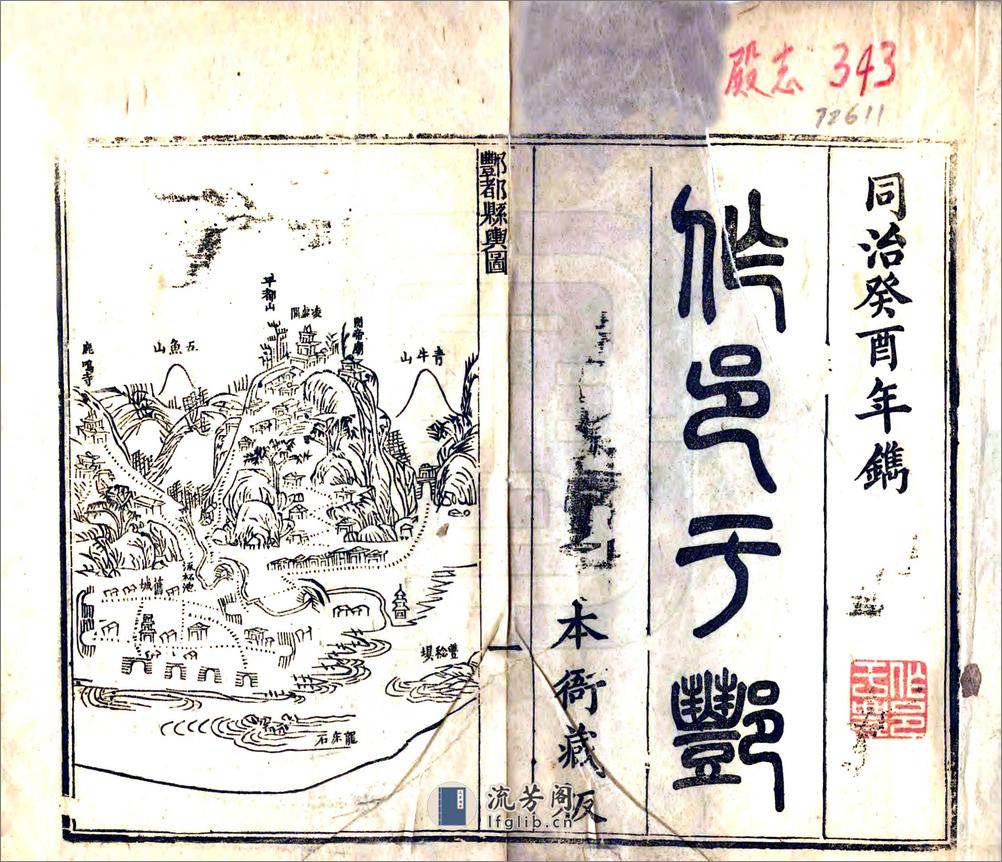 殿志 343
72611
同治癸酉年鐫
作邑于酆
本衙藏版
酆都縣輿圖
一
青牛山
關帝廟
凌虛閣
平都山
五魚山
鹿鳴寺
流杯池
舊城
豐稔壩
龍床石
流芳阁
lfglib.cn